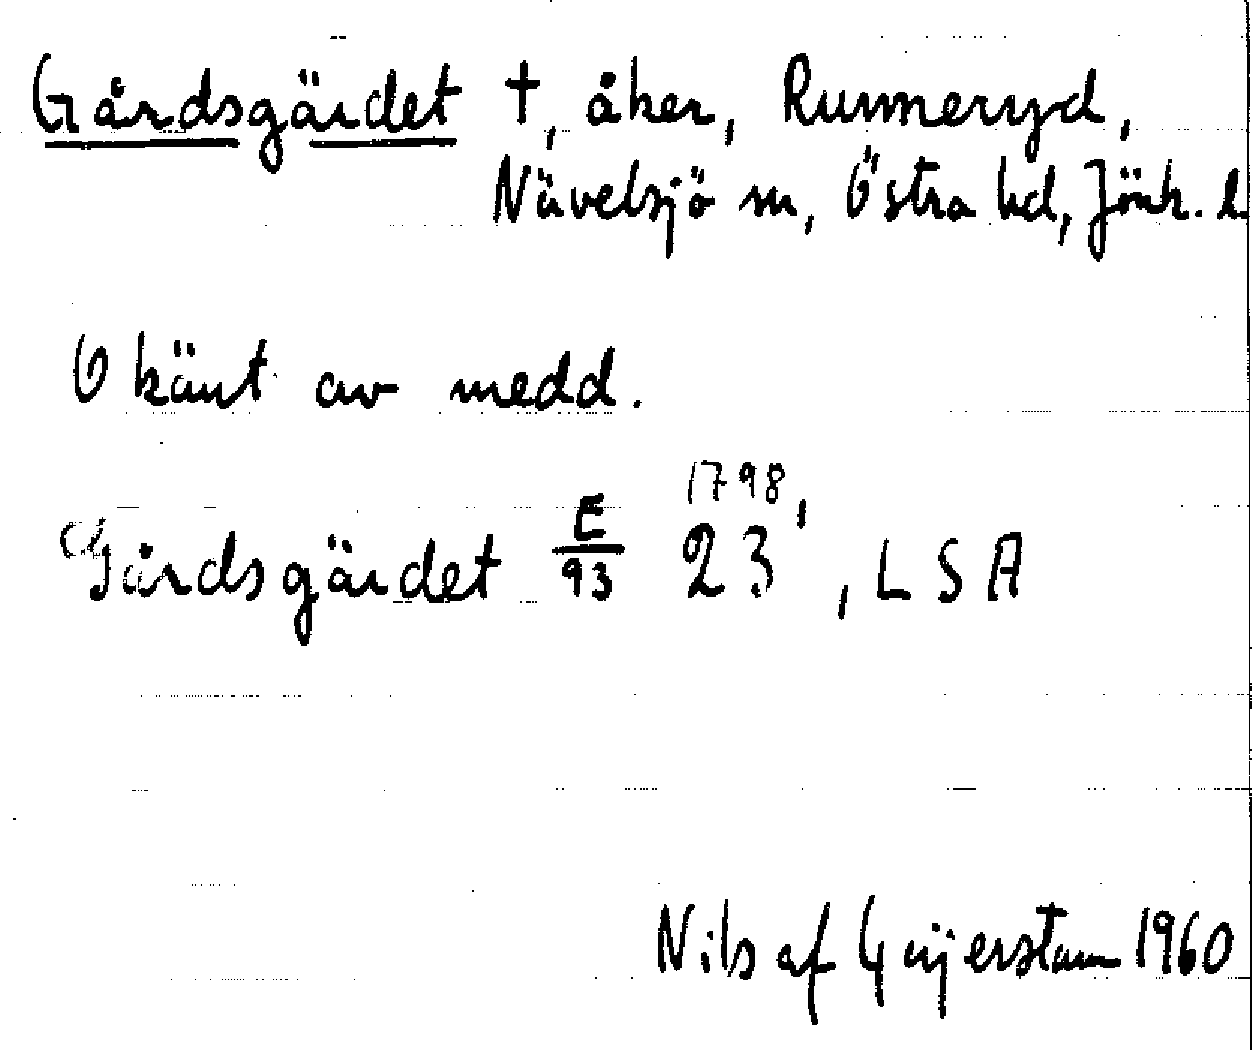 Gårdsgärdet †, åker, Rummeryd,
Nävelsjö sn, Östra hd, Jönk. l.
Okänt av medd.
Gårdsgärdet E/93 23 1798, , LSA
Nils af Geijerstam 1960